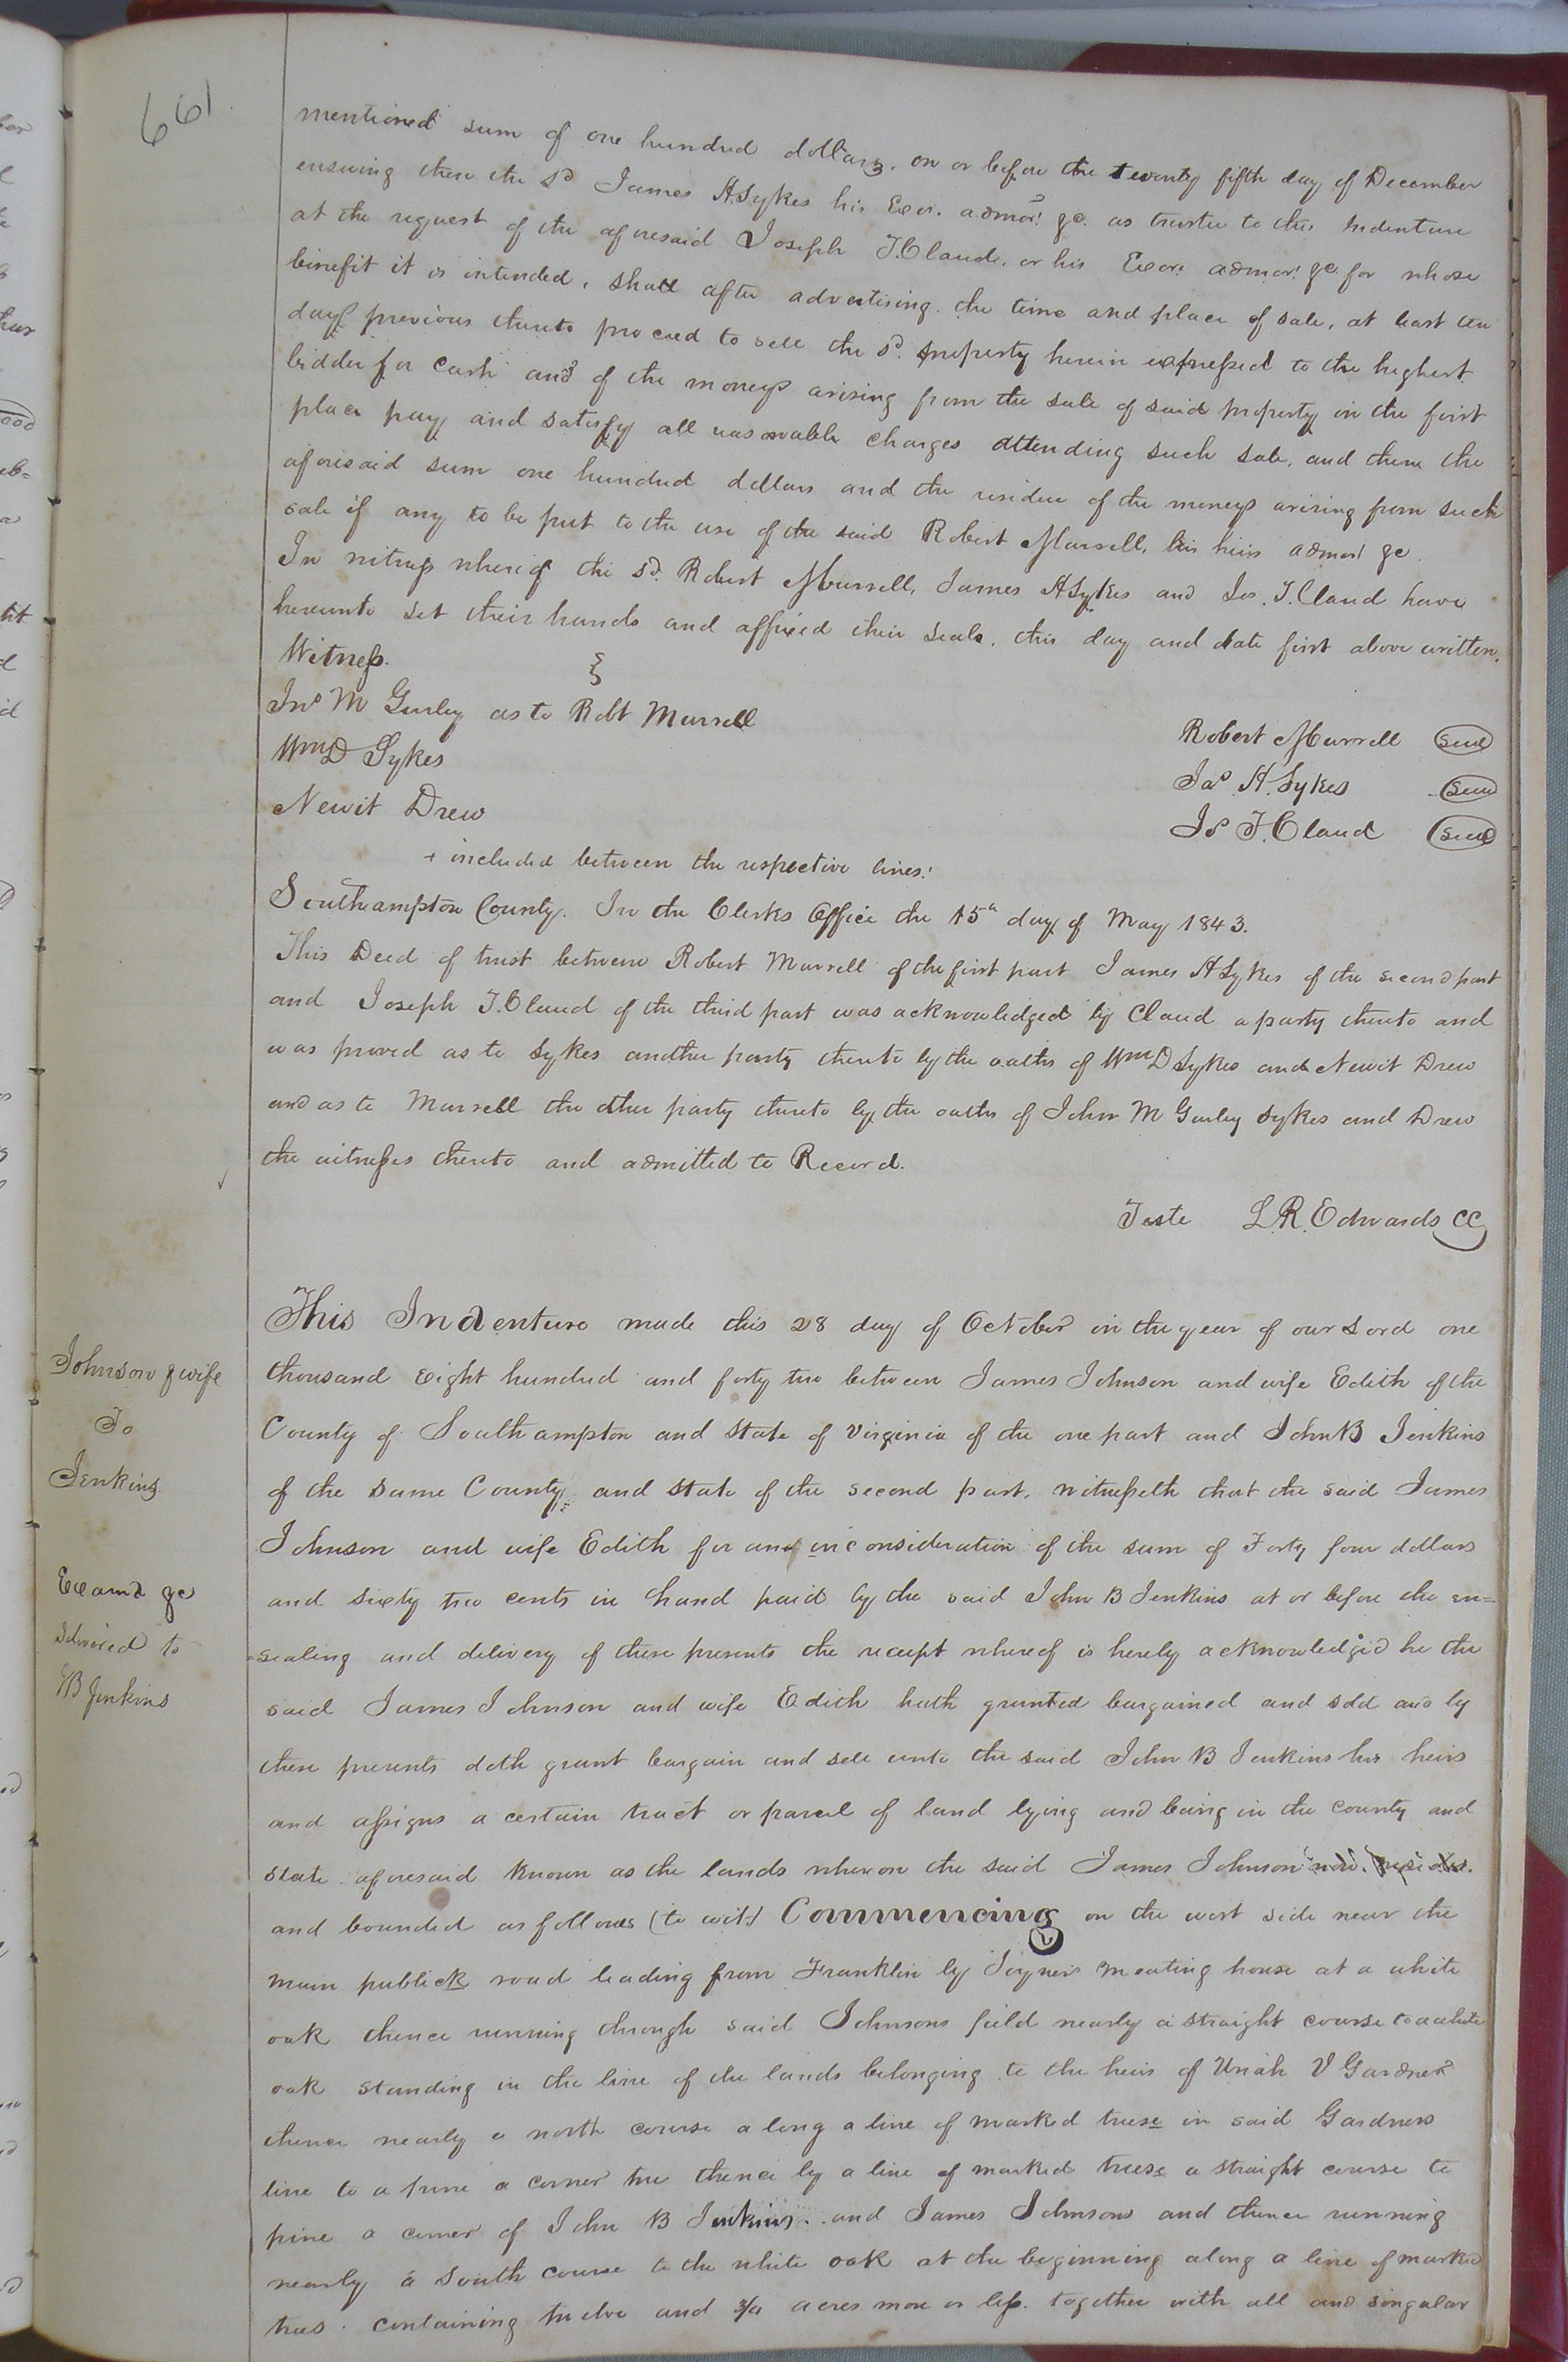 661.
mentioned sum of one hundred dollars, on or before the twenty fifth day of December
ensuing then the sd. James A. Sykes his Exor. admor. &c. as trustee to this Indenture
at the request of the aforesaid Joseph T. Claud, or his Exor. admor. &c. for whose
benefit it is intended, shall after advertising the time and place of sale, at least ten
days previous thereto proceed to sell the sd. property herein expressed to the highest
bidder for cash and of the moneys arising from the sale of said property in the first
place pay and satisfy all reasonable charges attending such sale, and then the
aforesaid sum one hundred dollars and the residue of the moneys arising from such
sale if any to be put to the use of the said Robert Murrell, his heirs admor &c.
In witness whereof the sd. Robert Murrell, James A Sykes and Jos. T. Claud have
hereunto set their hands and affixed their seals, this day and date first above written.
Witness.
Jno M Gurley as to Robt Murrell
Wm D Sykes
Newit Drew
Robert Murrell seal
Jas A. Sykes seal
Js T. Claud seal
+ included between the respective lines.
Southampton County. In the Clerks Office the 15th day of May 1843.
This Deed of trust between Robert Murrell of the first part James A Sykes of the second part
and Joseph T. Claud of the third part was acknowledged by Claud a party thereto and
was proved as to Sykes another party thereto by the oaths of Wm D Sykes and Newit Drew
and as to Murrell the other party thereto by the oaths of John M Gurley Sykes and Drew
the witnesses thereto and admitted to Record.
Teste L. R. Edwards CC
Johnson & wife
To
Jenkins
Examd &c
delivered to
JB Jenkins
This Indenture made this 28 day of October in the year of our Lord one
thousand eight hundred and forty two between James Johnson and wife Edith of the
County of Southampton and State of Virginia of the one part and John B Jenkins
of the same County and state of the second part, witnesseth that the said James
Johnson and wife Edith for and in consideration of the sum of Forty four dollars
and sixty two cents in hand paid by the said John B Jenkins at or before the en=
=sealing and delivery of these presents the receipt whereof is hereby acknowledged he the
said James Johnson and wife Edith hath granted bargained and sold and by
these presents doth grant bargain and sell unto the said John B Jenkins his heirs
and assigns a certain tract or parcel of land lying and being in the county and
state aforesaid known as the lands whereon the said James Johnson now resides.
and bounded as follows (to wit) Commencing on the west side near the
main publick road leading from Franklin by Joyners meating house at a white
oak thence running through said Johnsons field nearly a straight course to a white
oak standing in the line of the lands belonging to the heirs of Uriah V Gardner
thence nearly a north course along a line of marked treese in said Gardners
line to a pine a corner tree thence by a line of marked treese a straight course to
pine a corner of John B Jenkins and James Johnsons and thence running
nearly a south course to the white oak at the beginning along a line of marked
trees. containing twelve and 3/4 acres more or less. together with all and singular